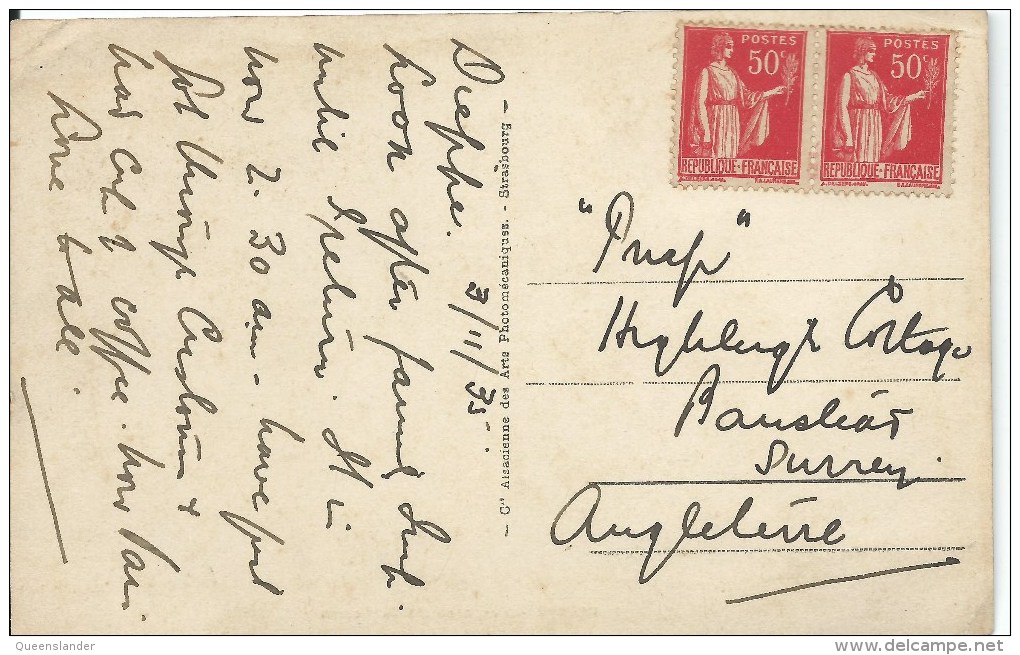 Dieppe. 3/11/35.
Soon after familiar
until Spelium. It is
now 2.30 am - have just
got through Customs &
had cup of coffee. Now Paris.
Love to all.
- Cie Alsacienne des Arts Photomécaniques. - Strasbourg -
POSTES
50c
REPUBLIQUE-FRANÇAISE
POSTES
50c
REPUBLIQUE-FRANÇAISE
Highleigh Cottage
Banstead
Surrey.
Angleterre
Queenslander
www.delcampe.net